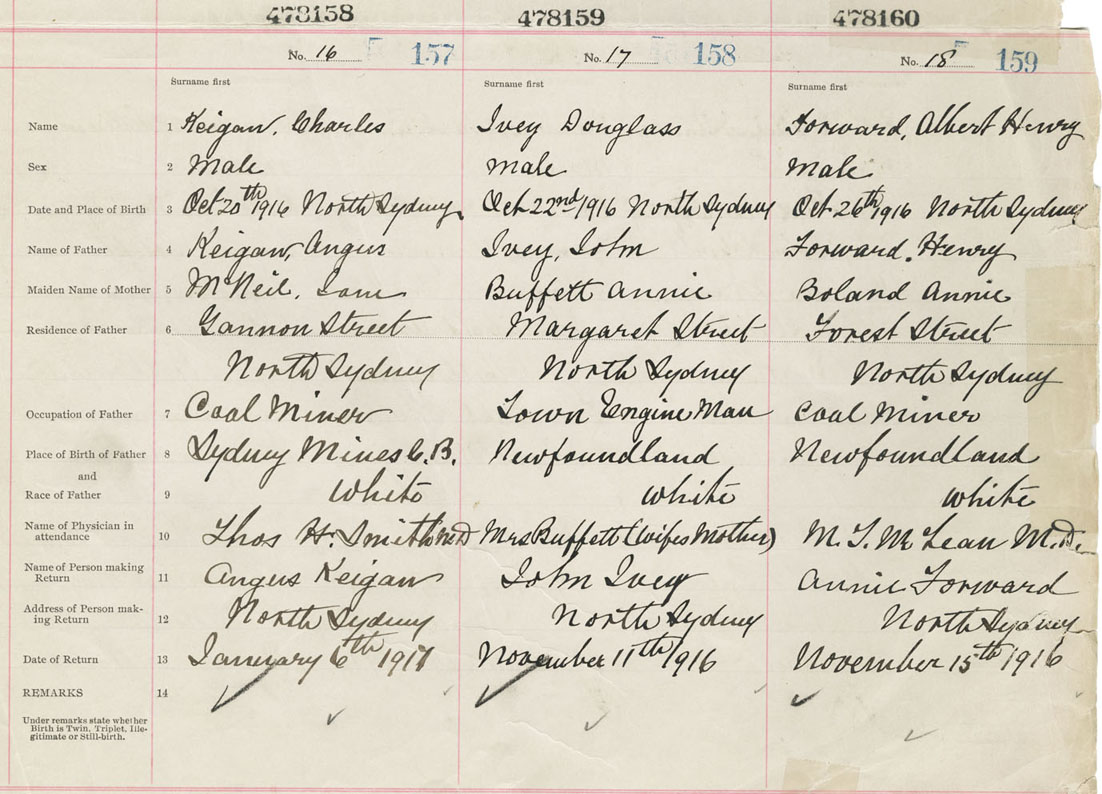 478158 478159 478160
No. 16 157 No. 17 158 No. 18 159
Surname first Surname first Surname first
Name 1 Keigan, Charles Ivey Douglass Forward, Albert Henry
Sex 2 Male Male Male
Date and Place of Birth 3 Oct 20th 1916 North Sydney Oct 22nd 1916 North Sydney Oct 26th 1916 North Sydney
Name of Father 4 Keigan, Angus Ivey, John Forward, Henry
Maiden Name of Mother 5 McNeil, Jane Buffett Annie Boland Annie
Residence of Father 6 Gannon Street Margaret Street Forest Street
North Sydney North Sydney North Sydney
Occupation of Father 7 Coal Miner Town Engine Man Coal Miner
Place of Birth of Father 8 Sydney Mines C.B. Newfoundland Newfoundland
and
Race of Father 9 White White White
Name of Physician in
attendance 10 Thos H. Smith MD Mrs Buffett (Wifes Mother) M. T. McLean M.D.
Name of Person making
Return 11 Angus Keigan John Ivey Annie Forward
Address of Person mak-
ing Return 12 North Sydney North Sydney North Sydney
Date of Return 13 January 6th 1917 November 11th 1916 November 15th 1916
REMARKS 14
Under remarks state whether
Birth is Twin, Triplet, Ille-
gitimate or Still-birth.